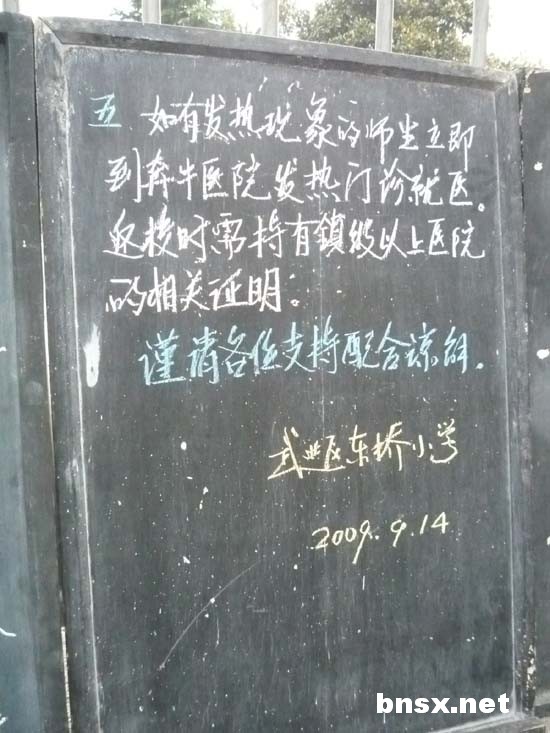 五 如有发热现象的师生立即
到奔牛医院发热门诊就医。
返校时需持有镇级以上医院
的相关证明。
谨请各位支持配合谅解.
武进区东桥小学
2009.9.14
bnsx.net